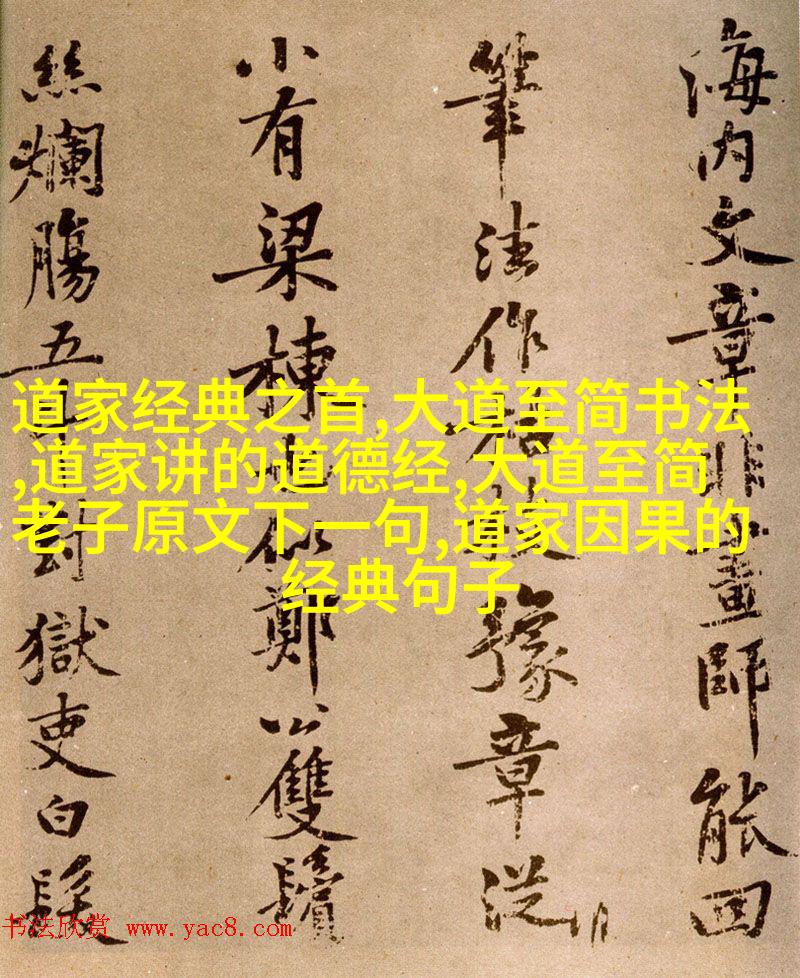 海内文章非畫師能回
筆法作枯枝豫章從
小有梁棟也似鄭公雙鬢
絲爛腸五斗對獄吏白髮
道家经典之首,大道至简书法
,道家讲的道德经,大道至简
老子原文下一句,道家因果的
经典句子
书法欣赏 www.yac8.com